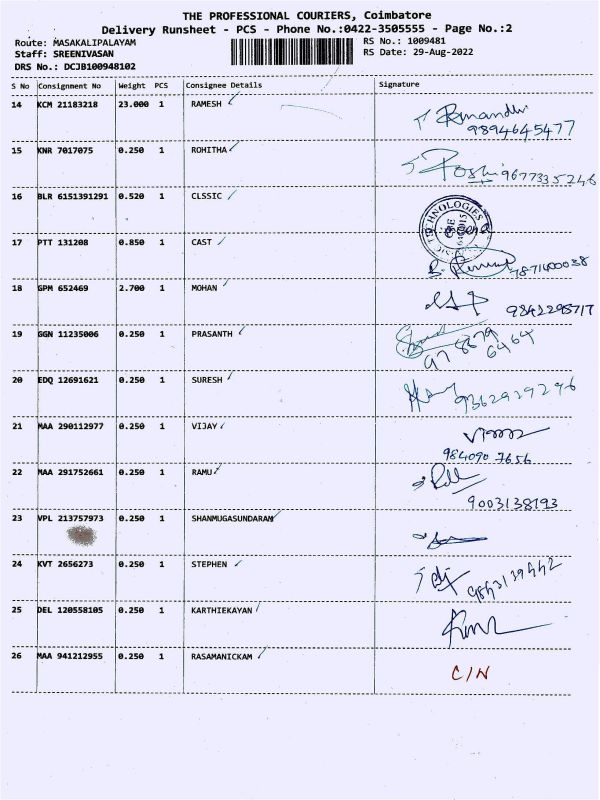 THE PROFESSIONAL COURIERS, Coimbatore
Delivery Runsheet - PCS - Phone No.:0422-3505555 - Page No.:2
Route: MASAKALIPALAYAM RS No.: 1009481
Staff: SREENIVASAN RS Date: 29-Aug-2022
DRS No.: DCJB100948102
S No Consignment No Weight PCS Consignee Details Signature
14 KCM 21183218 23.000 1 RAMESH
9894645477
15 KNR 7017075 0.250 1 ROHITHA
9677335246
16 BLR 6151391291 0.520 1 CLSSIC
TECHNOLOGIES
17 PTT 131208 0.850 1 CAST
7871400038
18 GPM 652469 2.700 1 MOHAN
9842295717
19 GGN 11235006 0.250 1 PRASANTH
978879
6464
20 EDQ 12691621 0.250 1 SURESH
9362929296
21 MAA 290112977 0.250 1 VIJAY
984090 7656
22 MAA 291752661 0.250 1 RAMU
9003138193
23 VPL 213757973 0.250 1 SHANMUGASUNDARAM
24 KVT 2656273 0.250 1 STEPHEN
9843139442
25 DEL 120558105 0.250 1 KARTHIEKAYAN
26 MAA 941212955 0.250 1 RASAMANICKAM C/N